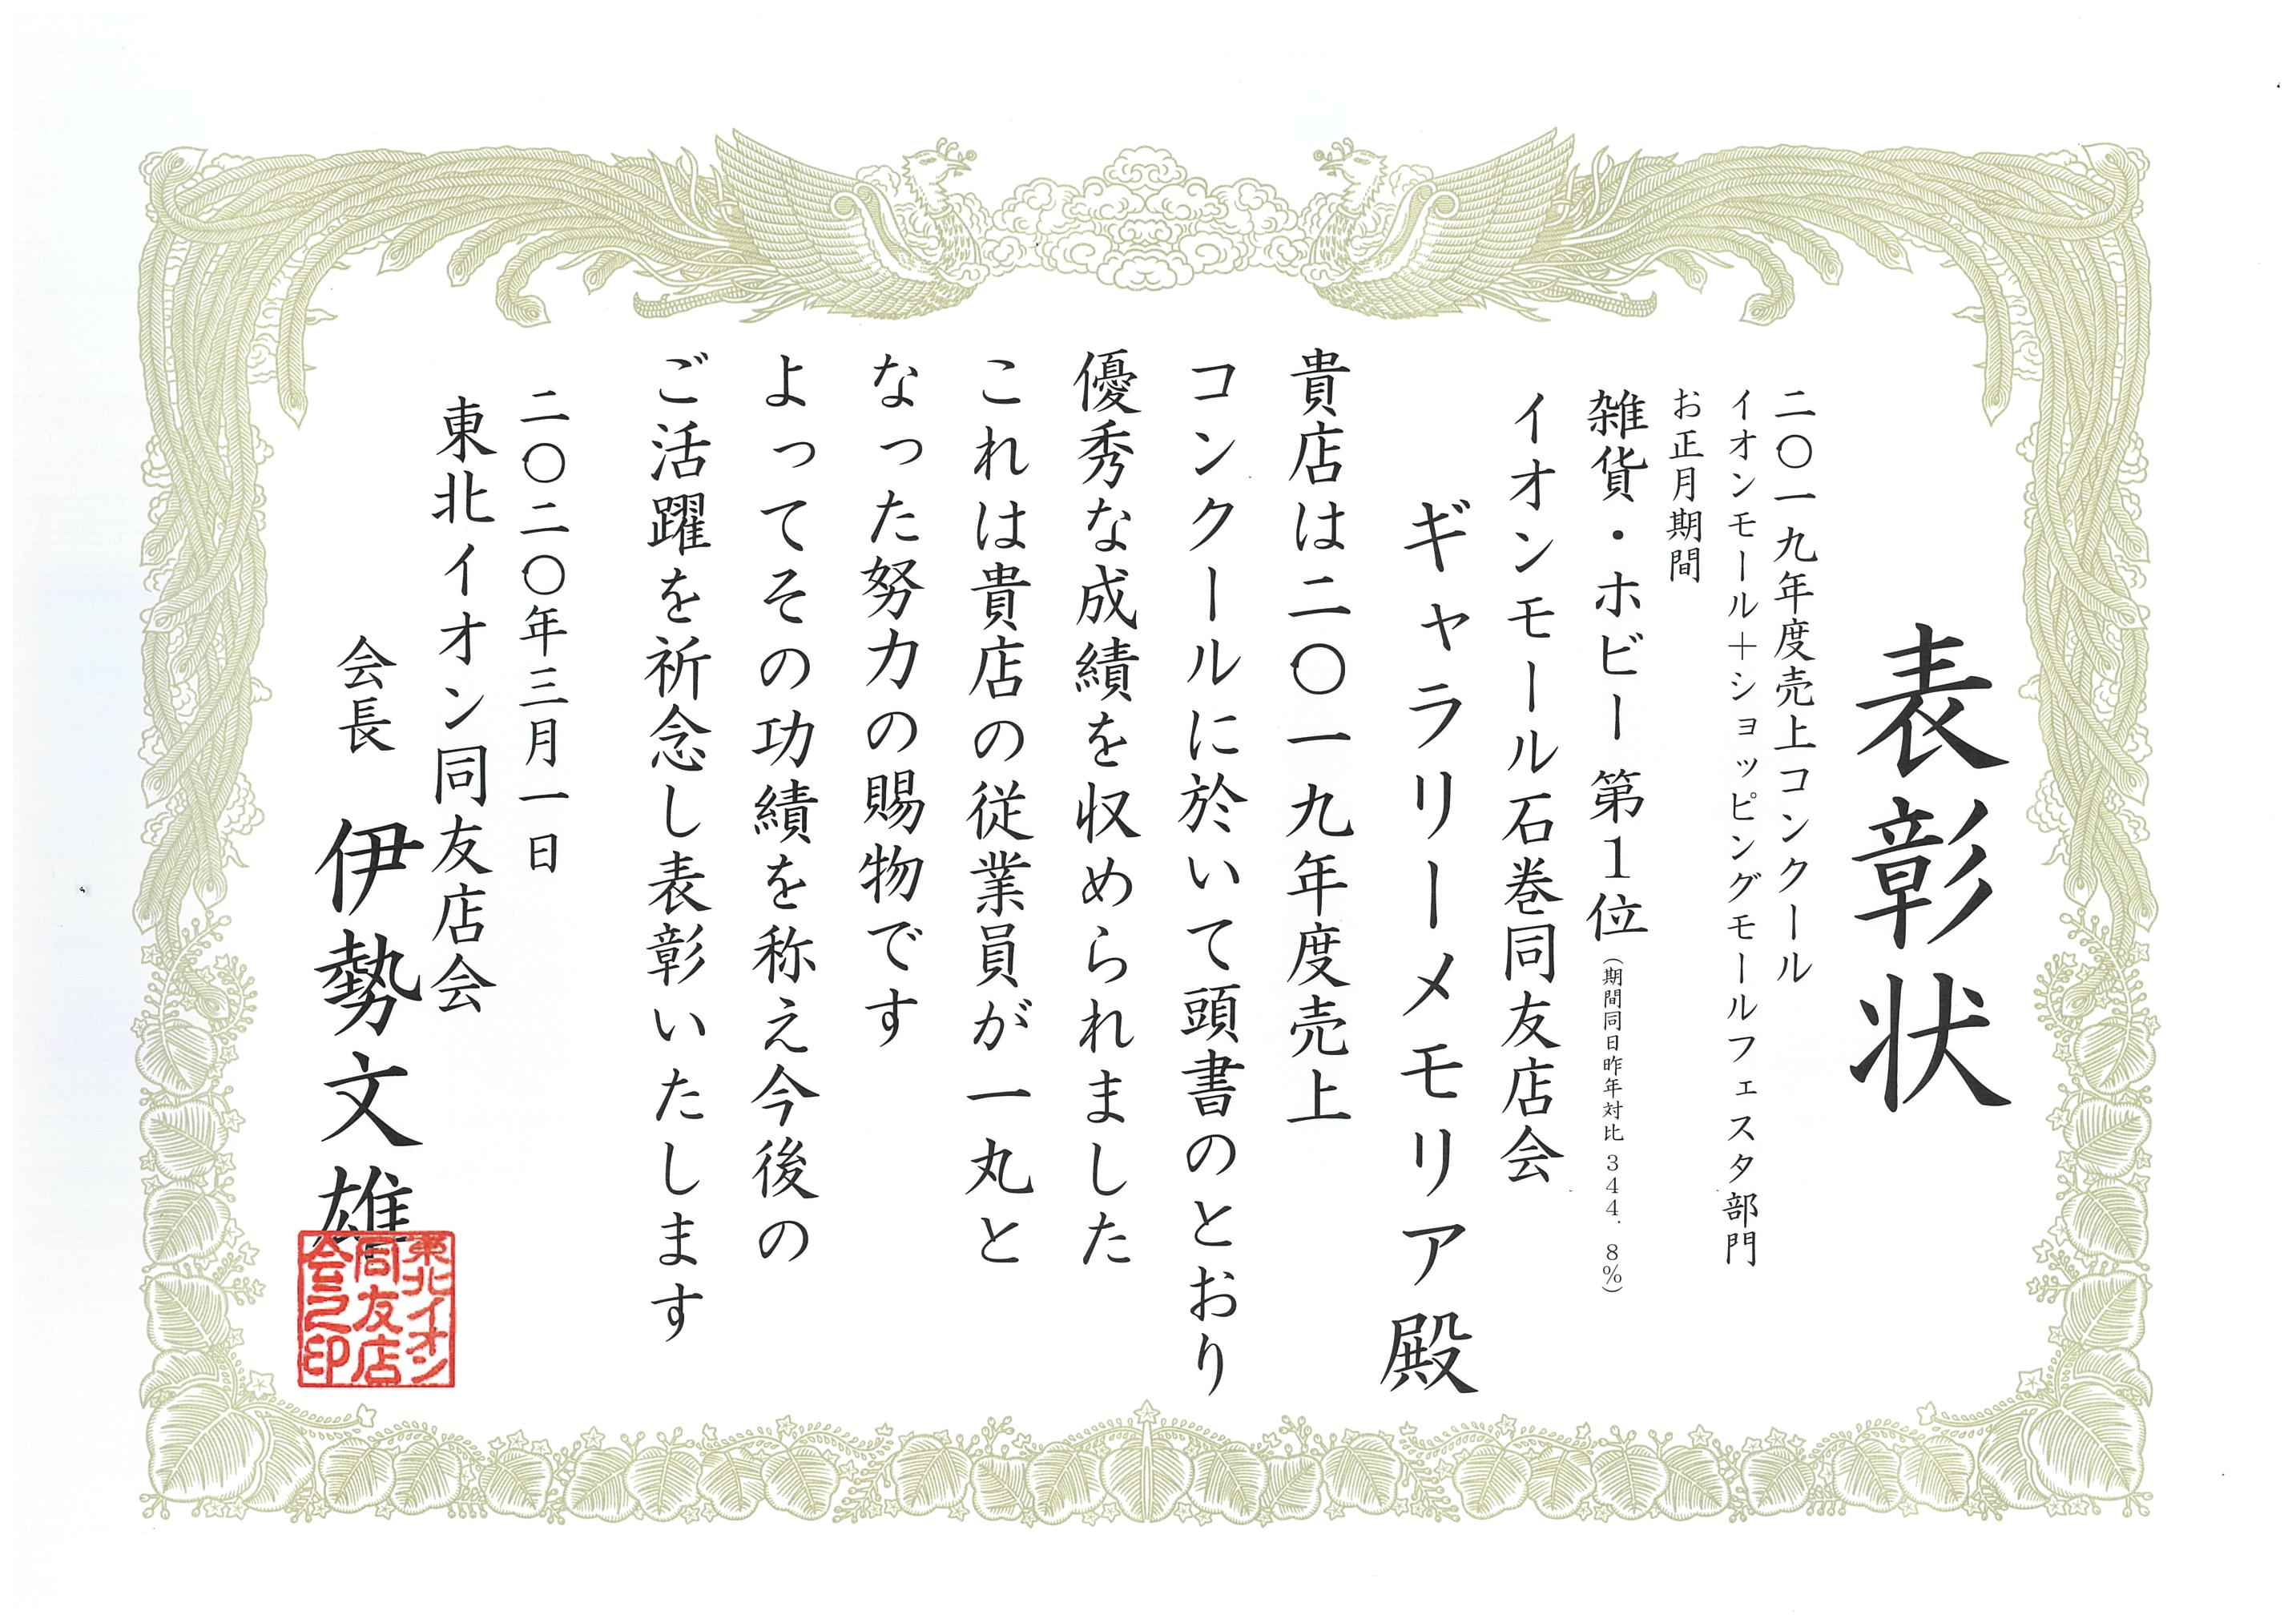 表彰状
二〇一九年度売上コンクール
イオンモール＋ショッピングモールフェスタ部門
お正月期間
雑貨・ホビー 第１位（期間同日昨年対比 ３４４．８％）
イオンモール石巻同友店会
ギャラリーメモリア殿
貴店は二〇一九年度売上
コンクールに於いて頭書のとおり
優秀な成績を収められました
これは貴店の従業員が一丸と
なった努力の賜物です
よってその功績を称え今後の
ご活躍を祈念し表彰いたします
二〇二〇年三月一日
東北イオン同友店会
会長 伊勢文雄
東北イオン
同友店
会之印